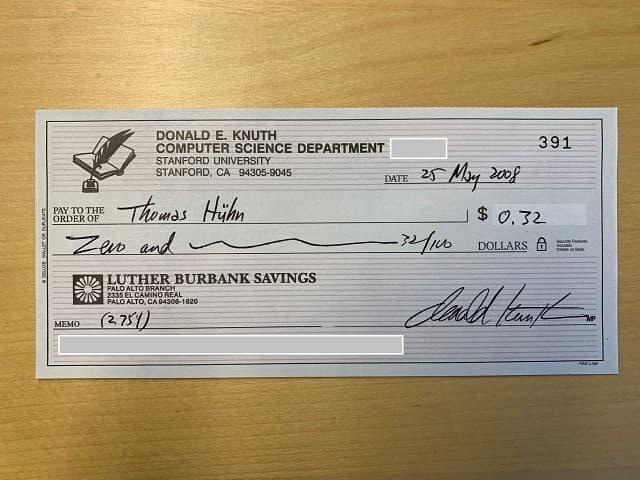 DONALD E. KNUTH
COMPUTER SCIENCE DEPARTMENT
STANFORD UNIVERSITY
STANFORD, CA 94305-9045
391
DATE 25 May 2008
PAY TO THE
ORDER OF Thomas Hühn $ 0.32
Zero and 32/100 DOLLARS
Security Features
Included.
Details on Back.
LUTHER BURBANK SAVINGS
PALO ALTO BRANCH
2335 EL CAMINO REAL
PALO ALTO, CA 94306-1620
MEMO (2.754) Donald Knuth MP